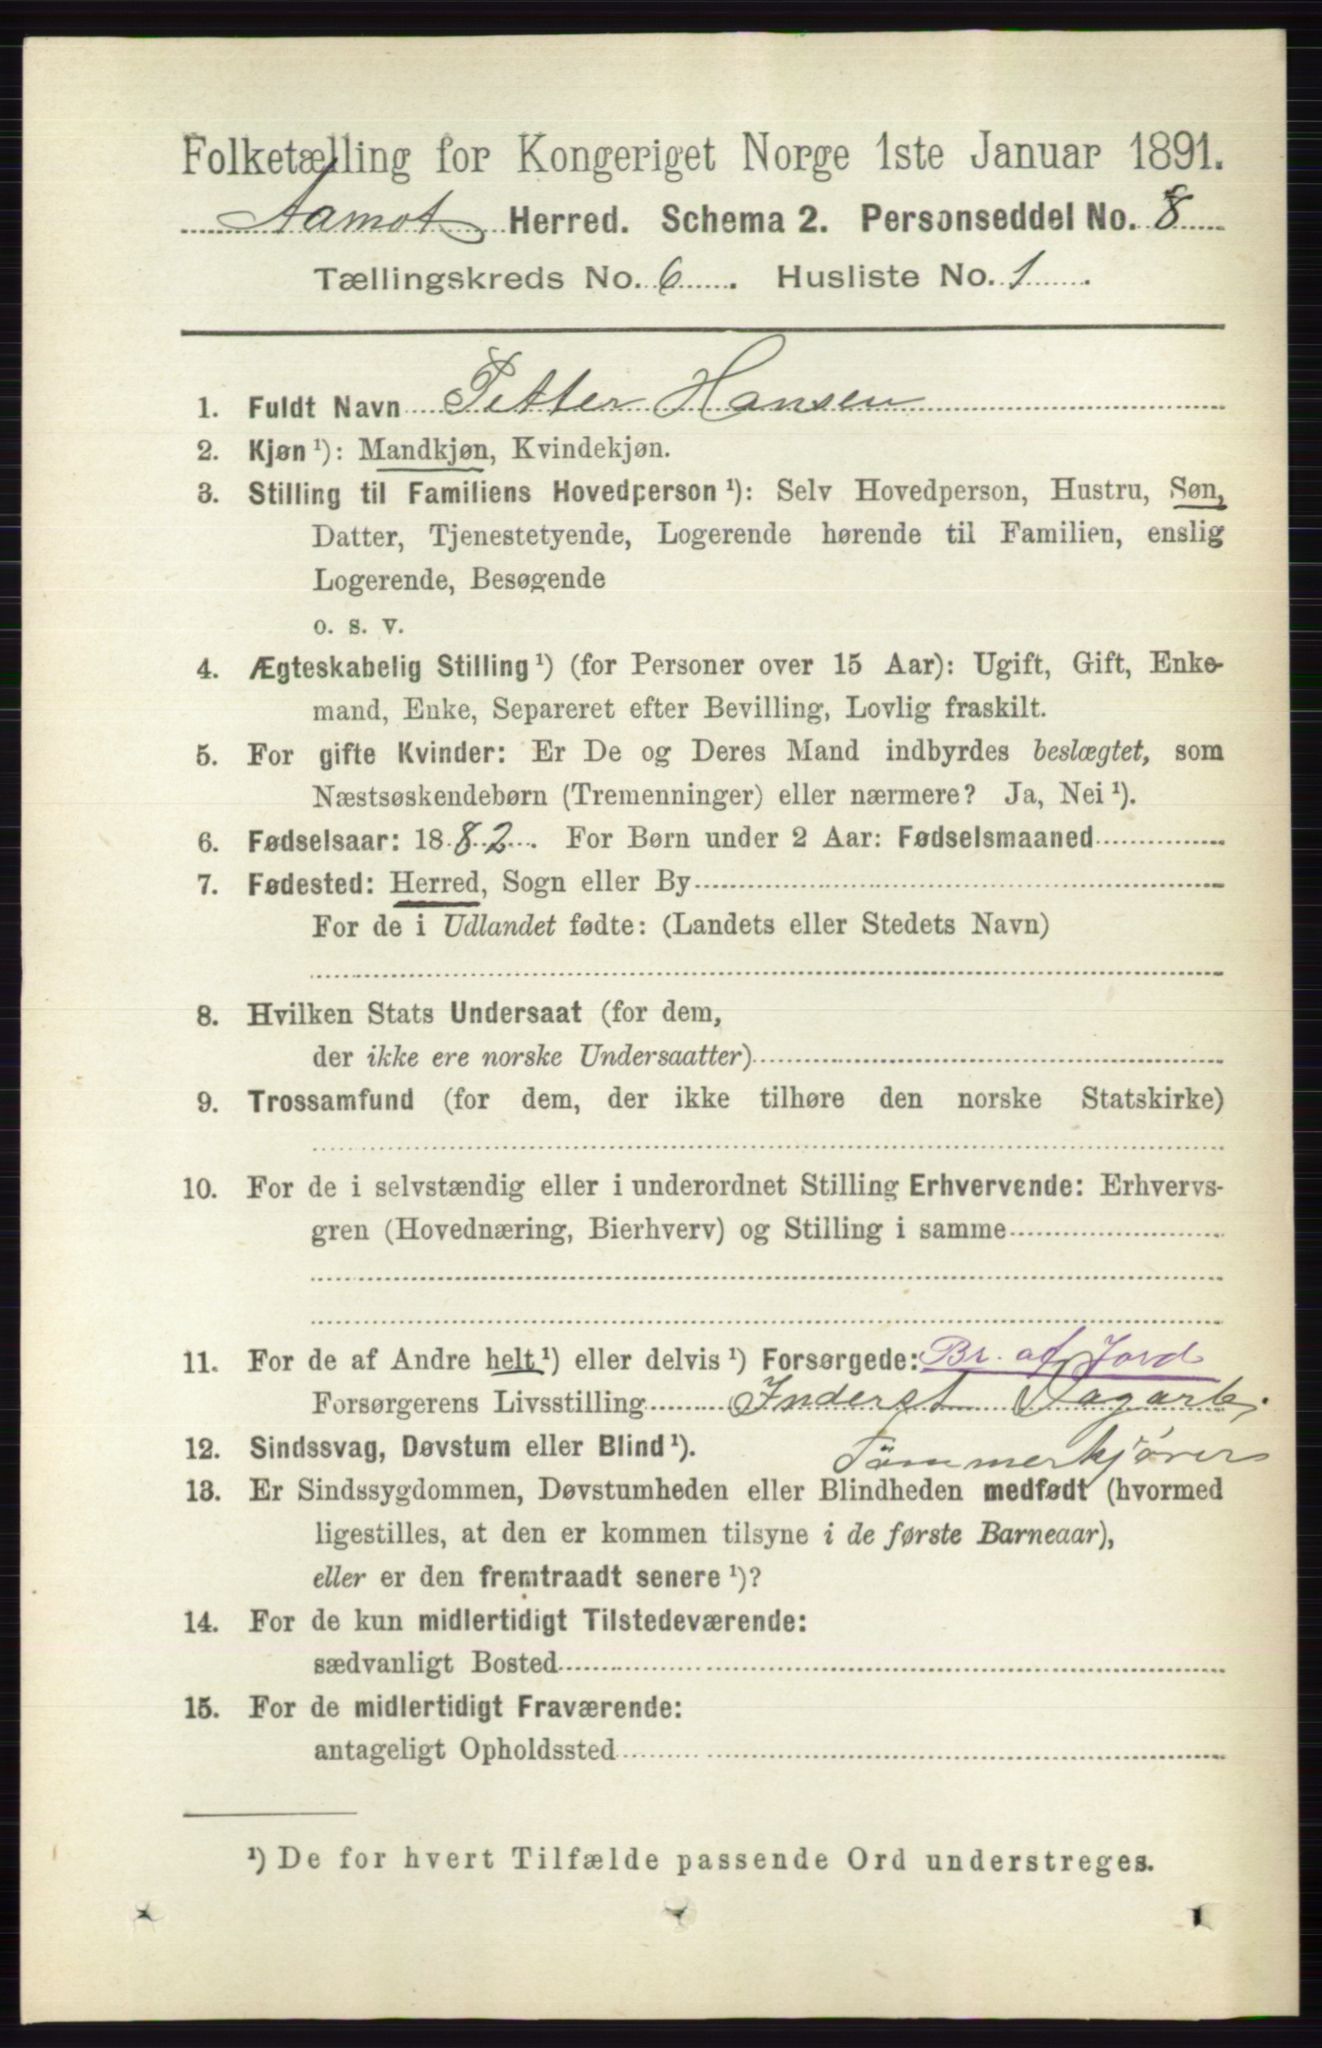 Folketælling for Kongeriget Norge 1ste Januar 1891.
Aamot Herred. Schema 2. Personseddel No. 8
Tællingskreds No. 6. Husliste No. 1.
1. Fuldt Navn Petter Hansen
2. Kjøn ¹): Mandkjøn, Kvindekjøn.
3. Stilling til Familiens Hovedperson ¹): Selv Hovedperson, Hustru, Søn,
Datter, Tjenestetyende, Logerende hørende til Familien, enslig
Logerende, Besøgende
o. s. v.
4. Ægteskabelig Stilling ¹) (for Personer over 15 Aar): Ugift, Gift, Enke-
mand, Enke, Separeret efter Bevilling, Lovlig fraskilt.
5. For gifte Kvinder: Er De og Deres Mand indbyrdes beslægtet, som
Næstsøskendebørn (Tremenninger) eller nærmere? Ja, Nei ¹).
6. Fødselsaar: 1882. For Børn under 2 Aar: Fødselsmaaned
7. Fødested: Herred, Sogn eller By
For de i Udlandet fødte: (Landets eller Stedets Navn)
8. Hvilken Stats Undersaat (for dem,
der ikke ere norske Undersaatter)
9. Trossamfund (for dem, der ikke tilhøre den norske Statskirke)
10. For de i selvstændig eller i underordnet Stilling Erhvervende: Erhvervs-
gren (Hovednæring, Bierhverv) og Stilling i samme
11. For de af Andre helt ¹) eller delvis ¹) Forsørgede: Br. af Jord
Forsørgerens Livsstilling Inderst Dagarb.
12. Sindssvag, Døvstum eller Blind ¹). Tömmerkjører
13. Er Sindssygdommen, Døvstumheden eller Blindheden medfødt (hvormed
ligestilles, at den er kommen tilsyne i de første Barneaar),
eller er den fremtraadt senere ¹)?
14. For de kun midlertidigt Tilstedeværende:
sædvanligt Bosted
15. For de midlertidigt Fraværende:
antageligt Opholdssted
¹) De for hvert Tilfælde passende Ord understreges.